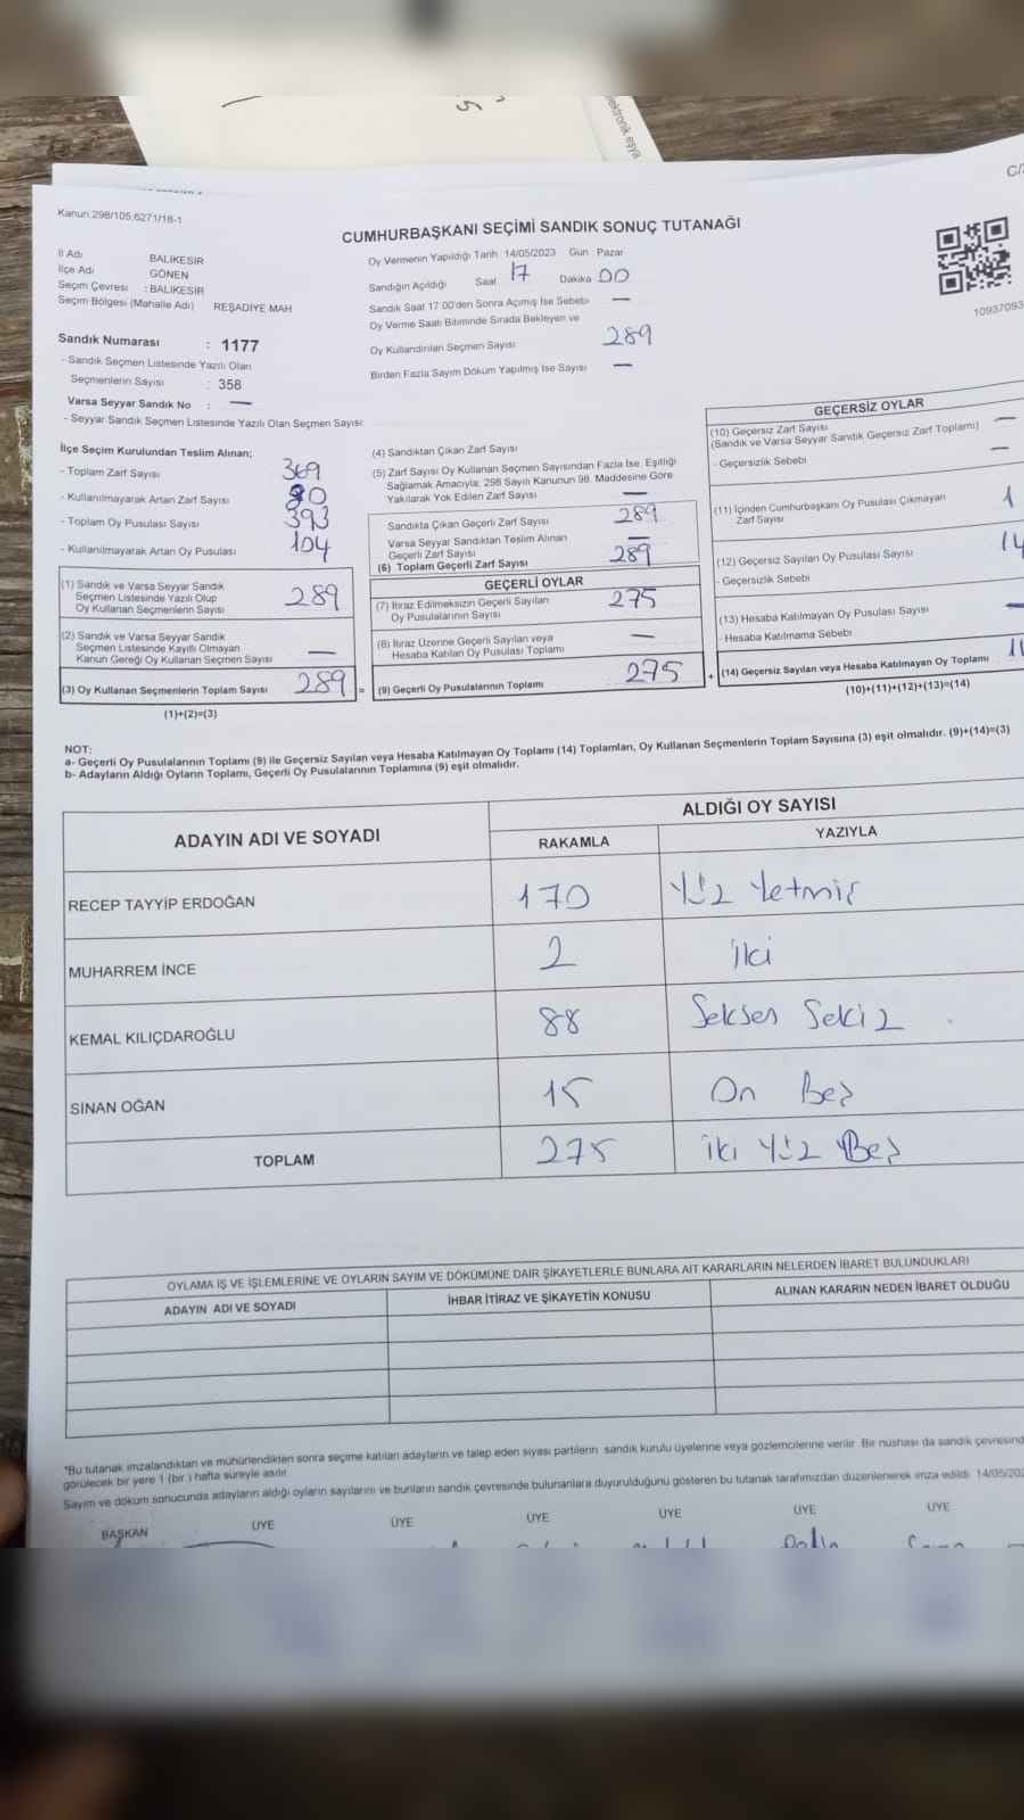 5
elektronik eşya
C/
Kanun:298/105,6271/18-1
CUMHURBAŞKANI SEÇİMİ SANDIK SONUÇ TUTANAĞI
İl Adı BALIKESİR
İlçe Adı GÖNEN
Seçim Çevresi : BALIKESİR
Seçim Bölgesi (Mahalle Adı) REŞADİYE MAH
Oy Vermenin Yapıldığı Tarih: 14/05/2023 Gün: Pazar
Sandığın Açıldığı Saat 17 Dakika 00
Sandık Saat 17.00'den Sonra Açmış İse Sebebi —
Oy Verme Saati Bitiminde Sırada Bekleyen ve
Oy Kullandırılan Seçmen Sayısı 289
Birden Fazla Sayım Döküm Yapılmış İse Sayısı —
10937093
Sandık Numarası : 1177
- Sandık Seçmen Listesinde Yazılı Olan
Seçmenlerin Sayısı : 358
Varsa Seyyar Sandık No : —
- Seyyar Sandık Seçmen Listesinde Yazılı Olan Seçmen Sayısı:
İlçe Seçim Kurulundan Teslim Alınan;
- Toplam Zarf Sayısı 369
- Kullanılmayarak Artan Zarf Sayısı 80
- Toplam Oy Pusulası Sayısı 393
- Kullanılmayarak Artan Oy Pusulası 104
(1) Sandık ve Varsa Seyyar Sandık
Seçmen Listesinde Yazılı Olup
Oy Kullanan Seçmenlerin Sayısı 289
(2) Sandık ve Varsa Seyyar Sandık
Seçmen Listesinde Kayıtlı Olmayan
Kanun Gereği Oy Kullanan Seçmen Sayısı —
(3) Oy Kullanan Seçmenlerin Toplam Sayısı 289 =
(1)+(2)=(3)
(4) Sandıktan Çıkan Zarf Sayısı
(5) Zarf Sayısı Oy Kullanan Seçmen Sayısından Fazla İse, Eşitliği
Sağlamak Amacıyla, 298 Sayılı Kanunun 98. Maddesine Göre
Yakılarak Yok Edilen Zarf Sayısı —
Sandıkta Çıkan Geçerli Zarf Sayısı 289
Varsa Seyyar Sandıktan Teslim Alınan
Geçerli Zarf Sayısı —
(6) Toplam Geçerli Zarf Sayısı 289
GEÇERLİ OYLAR
(7) İtiraz Edilmeksizin Geçerli Sayılan
Oy Pusulalarının Sayısı 275
(8) İtiraz Üzerine Geçerli Sayılan veya
Hesaba Katılan Oy Pusulası Toplamı —
(9) Geçerli Oy Pusulalarının Toplamı 275 +
GEÇERSİZ OYLAR
(10) Geçersiz Zarf Sayısı
(Sandık ve Varsa Seyyar Sandık Geçersiz Zarf Toplamı) —
- Geçersizlik Sebebi —
(11) İçinden Cumhurbaşkanı Oy Pusulası Çıkmayan
Zarf Sayısı
(12) Geçersiz Sayılan Oy Pusulası Sayısı 14
- Geçersizlik Sebebi
(13) Hesaba Katılmayan Oy Pusulası Sayısı —
- Hesaba Katılmama Sebebi
(14) Geçersiz Sayılan veya Hesaba Katılmayan Oy Toplamı
(10)+(11)+(12)+(13)=(14)
NOT:
a- Geçerli Oy Pusulalarının Toplamı (9) ile Geçersiz Sayılan veya Hesaba Katılmayan Oy Toplamı (14) Toplamları, Oy Kullanan Seçmenlerin Toplam Sayısına (3) eşit olmalıdır. (9)+(14)=(3)
b- Adayların Aldığı Oyların Toplamı, Geçerli Oy Pusulalarının Toplamına (9) eşit olmalıdır.
ADAYIN ADI VE SOYADI ALDIĞI OY SAYISI
RAKAMLA YAZIYLA
RECEP TAYYİP ERDOĞAN 170 Yüz Yetmiş
MUHARREM İNCE 2 iki
KEMAL KILIÇDAROĞLU 88 Seksen Sekiz
SİNAN OĞAN 15 On Beş
TOPLAM 275 iki Yüz Beş
OYLAMA İŞ VE İŞLEMLERİNE VE OYLARIN SAYIM VE DÖKÜMÜNE DAİR ŞİKAYETLERLE BUNLARA AİT KARARLARIN NELERDEN İBARET BULUNDUKLARI
ADAYIN ADI VE SOYADI İHBAR İTİRAZ VE ŞİKAYETİN KONUSU ALINAN KARARIN NEDEN İBARET OLDUĞU
*Bu tutanak imzalandıktan ve mühürlendikten sonra seçime katılan adayların ve talep eden siyasi partilerin sandık kurulu üyelerine veya gözlemcilerine verilir. Bir nüshası da sandık çevresind
görülecek bir yere 1 (bir ) hafta süreyle asılır.
Sayım ve döküm sonucunda adayların aldığı oyların sayılarını ve bunların sandık çevresinde bulunanlara duyurulduğunu gösteren bu tutanak tarafımızdan düzenlenerek imza edildi. 14/05/202
BAŞKAN ÜYE ÜYE ÜYE ÜYE ÜYE ÜYE